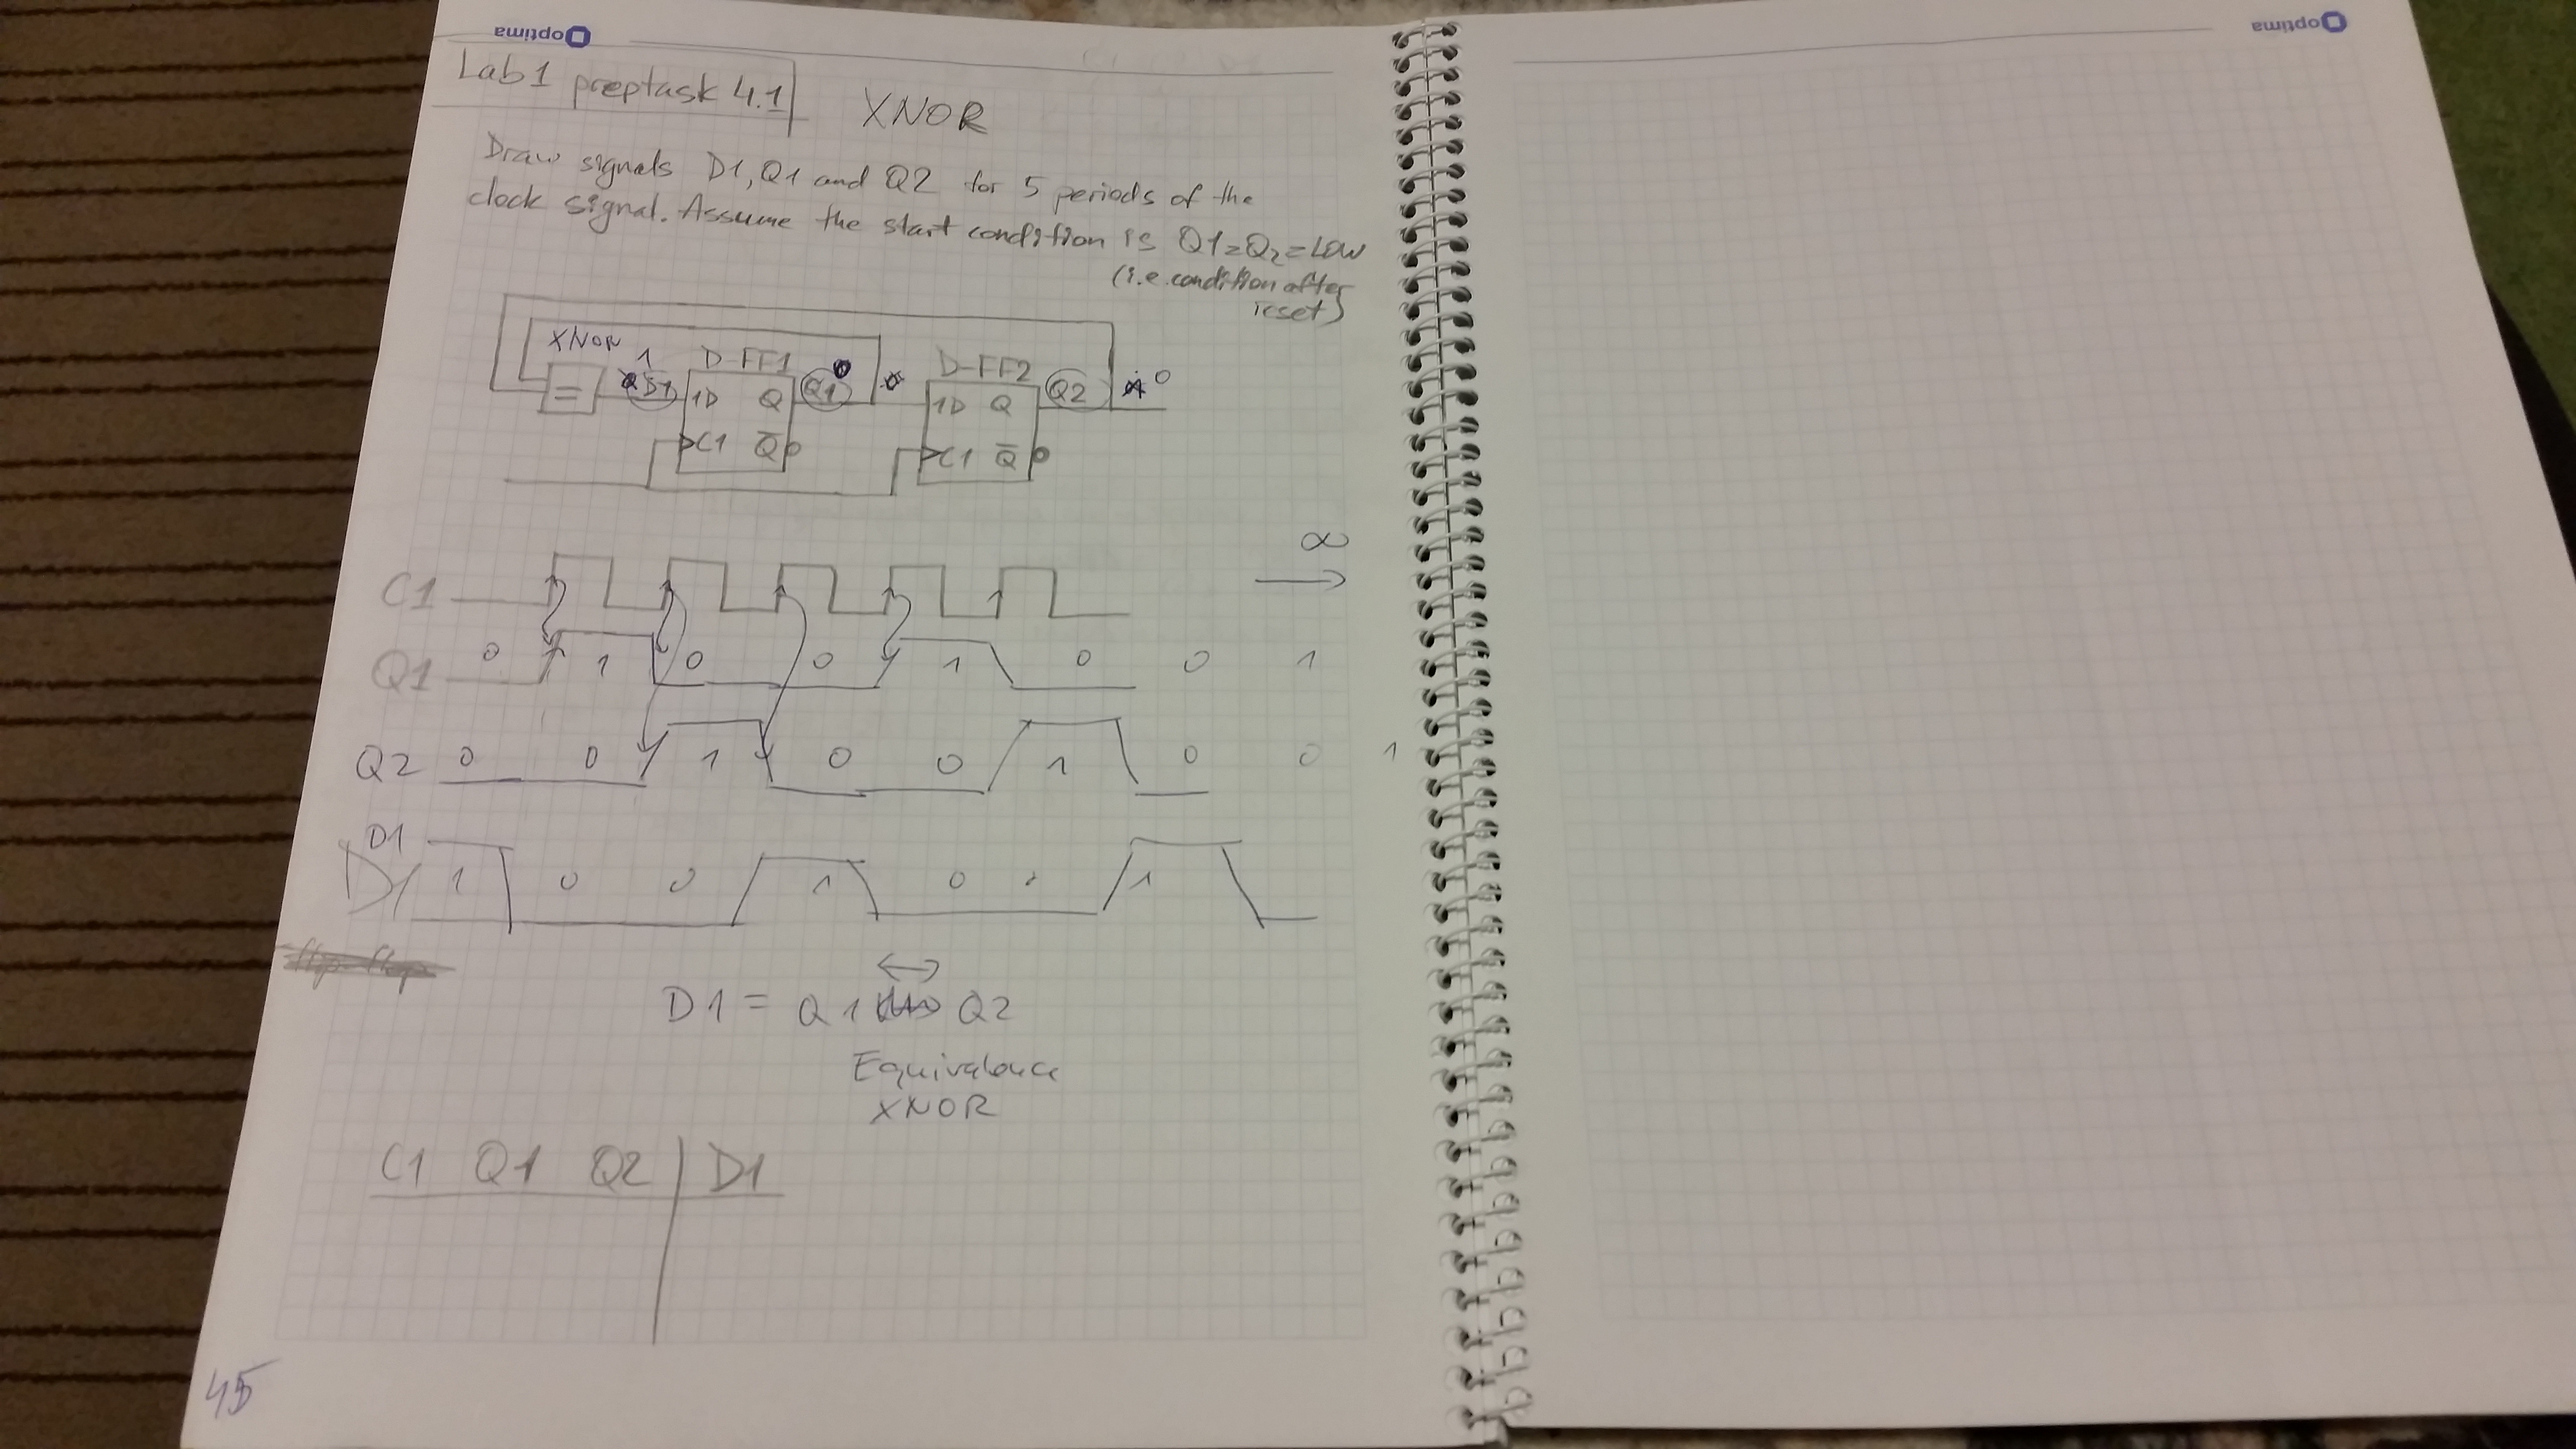 optima
optima
Lab1 preptask 4.1
XNOR
Draw signals D1, Q1 and Q2 for 5 periods of the
clock signal. Assume the start condition is Q1=Q2=LOW
(i.e. condition after
reset)
XNOR 1 D-FF1 0 D-FF2
= D1 1D Q Q1 1D Q Q2 0
C1 Q̅ C1 Q̅
∞
C1
Q1 0 1 0 0 1 0 0 1
Q2 0 0 1 0 0 1 0 0 1
D1
D1 1 0 0 1 0 1
D1 = Q1 ↔ Q2
Equivalence
XNOR
C1 Q1 Q2 | D1
45